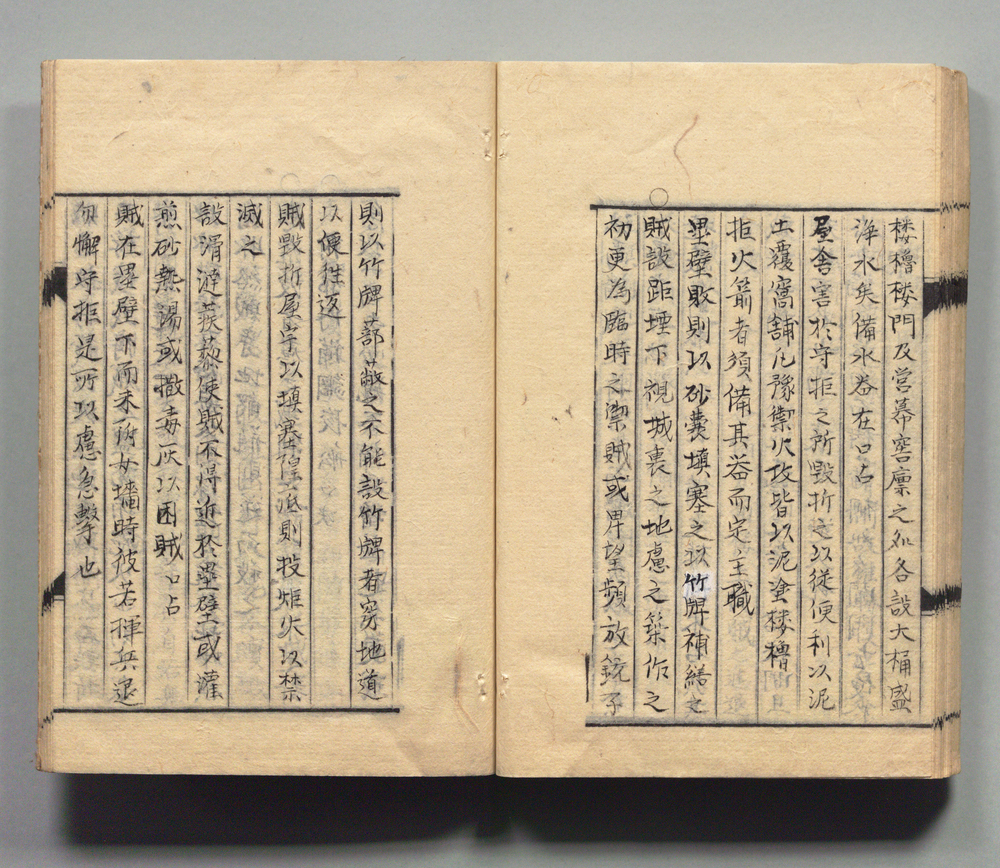 楼櫓楼門及営幕窖廩之処各設大桶盛
浄水矣備水器在口占
屋舎害於守拒之所毀折之以従便利以泥
土覆窩舗凡豫禦火攻皆以泥塗楼櫓
拒火箭者須備其器而定主職
壘壁敗則以砂嚢填塞之以竹牌補繕之
賊設距堙下視城裏之地慮之築作之
初更為臨時之禦賊或昇望頻放銃子
則以竹牌蔀蔽之不能設竹牌者穿地道
以便往返
賊毀折屋宇以填塞隍池則投炬火以禁
滅之
設滑漣蒺䔧使賊不得近於壘壁或灌
煎砂熱湯或撒毒灰以困賊口占
賊在壘壁下而未附女墻時彼若揮兵退
勿懈守拒是所以慮急撃也